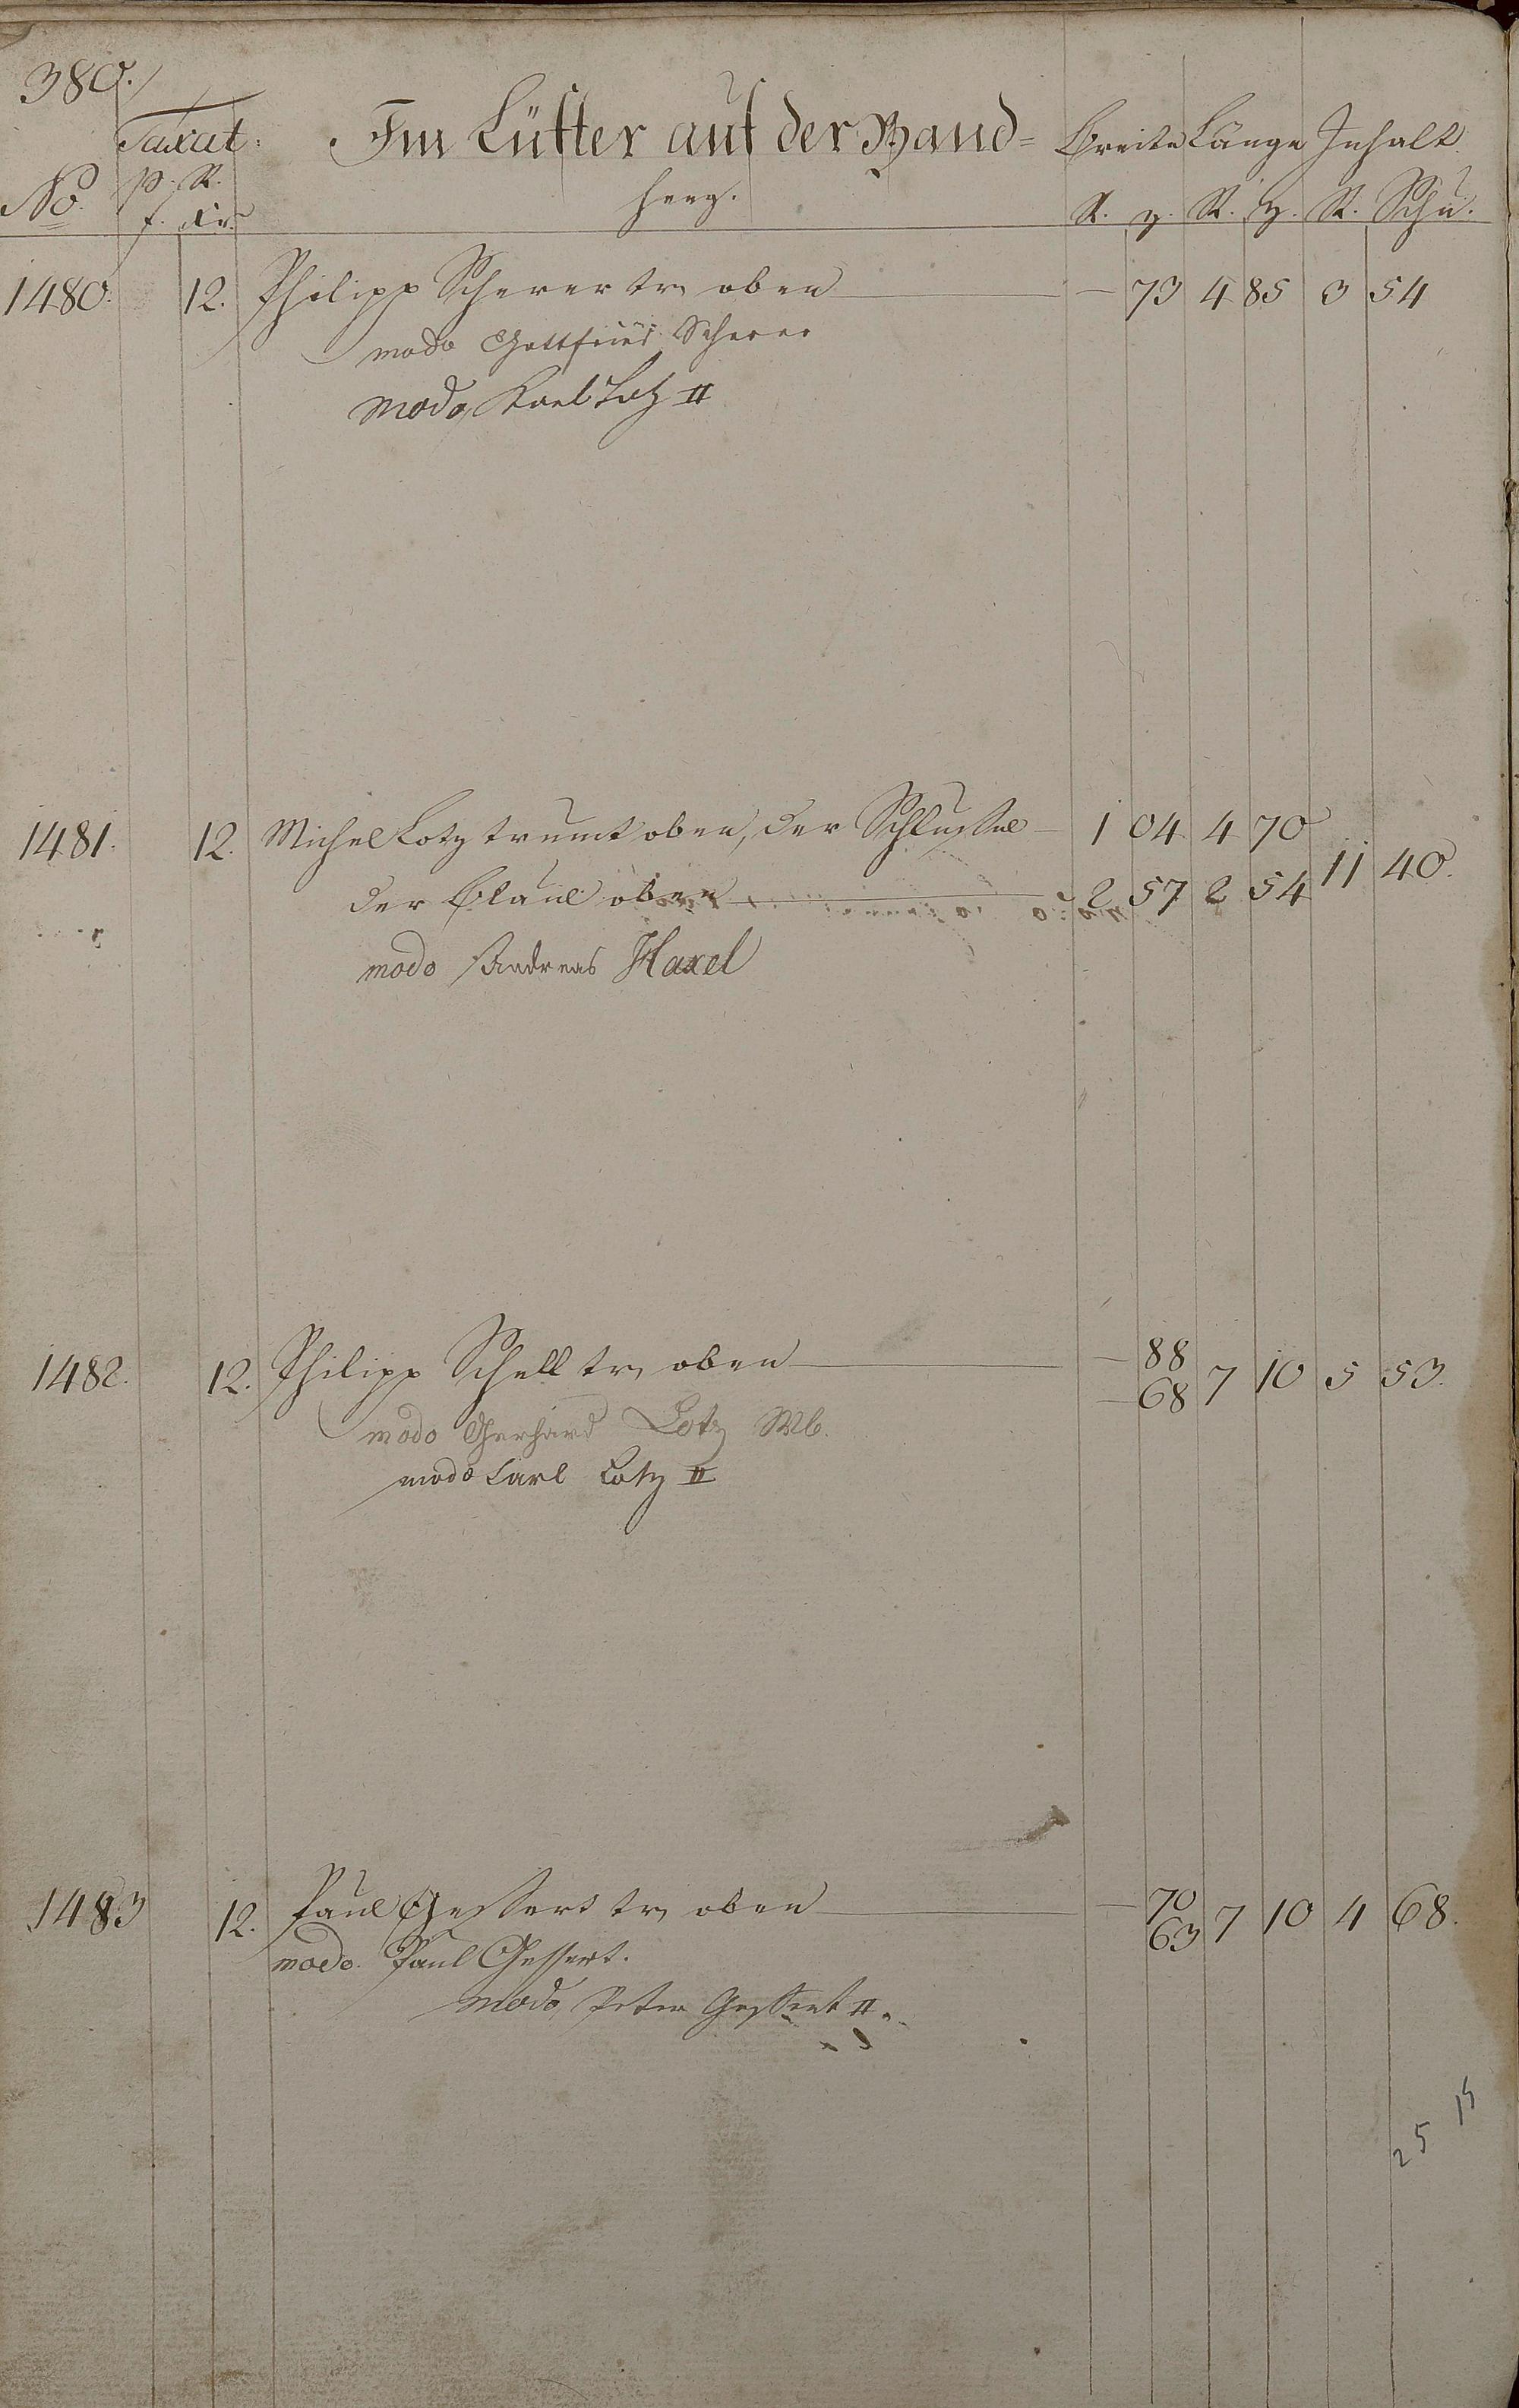 380.
Taxat. Im Lütter auf der Band= Breite Länge Inhalt
No. p. R. heeg.
f. xr. R. z. R. z. R. Schu.
1480. 12. Philipp Scherer tr. oben — 73 4 85 3 54
modo Gottfried Scherer
modo Karl Lotz II
1481. 12. Michel Lotz trumt oben, der Schlüssel — 1 04 4 70
der Blauel oben — 2 57 2 54 11 40.
modo Andreas Haxel
1482. 12. Philipp Schell tr. oben — 88
— 68 7 10 5 53.
modo Gerhard Lotz Wb.
modo Carl Lotz II
1483 12. Paul Gessert tr. oben — 70
63 7 10 4 68.
modo. Paul Gessert.
modo Peter Gessert II.
25 15